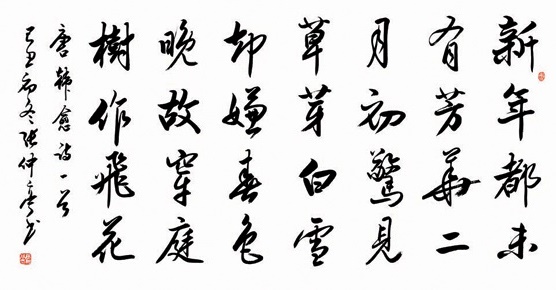 新年都未
有芳華二
月初驚見
草芽白雪
却嫌春色
晚故穿庭
樹作飛花
唐韓愈詩一首
己丑初冬張仲亭书